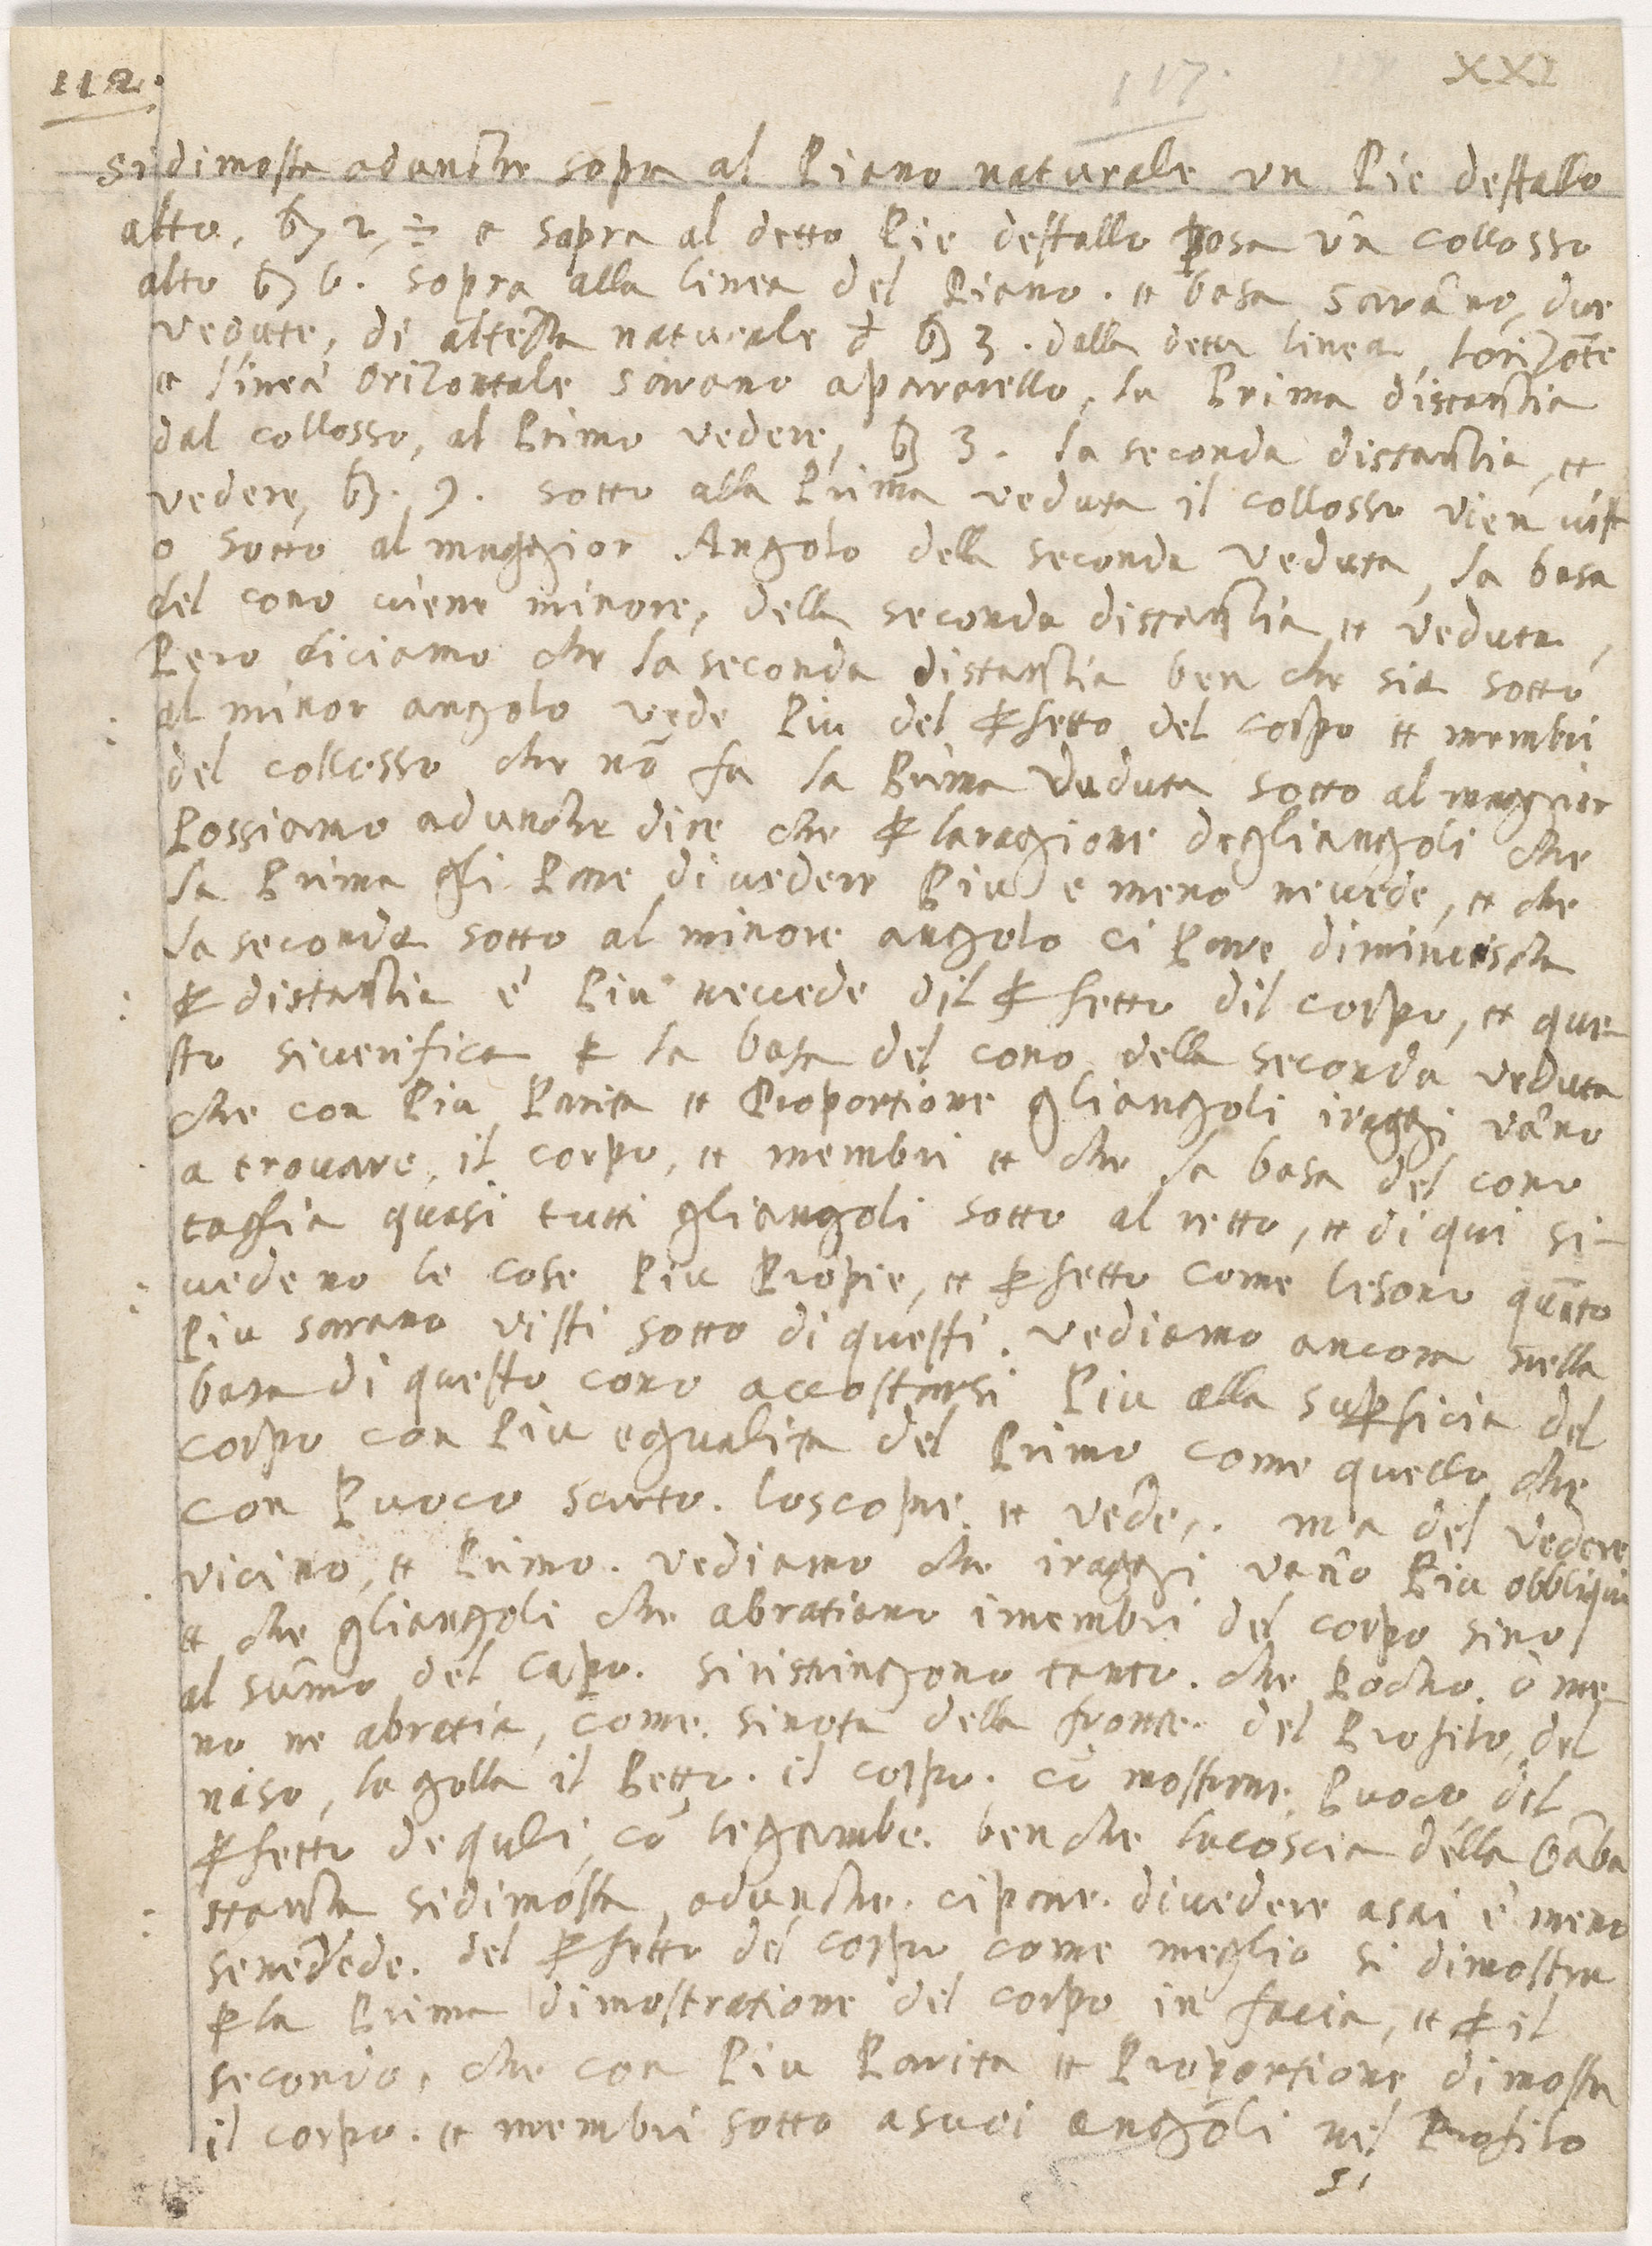 112.
117.
XXI
si dimostra adunche sopra al Piano naturale un Pie destallo
alto, 2, ÷ e sopra al detto Pie destallo posa ũn collosso
alto 6. sopra alla linea del Piano. et basa sarãno, due
vedute, di altezza naturale 3. dalla detta linea, lorizõte
e linea orizontale sarano apararello, la Prima distantia
dal collosso, al Primo vedere, 3. la seconda distantia, et
vedere, 9. sotto alla Prima veduta il collosso vien vist
o sotto al maggior Angolo della seconda veduta, la basa
del cono viene minore, della seconda distantia et veduta,
Pero diciamo che la seconda distantia ben che sia sotto
al minor angolo vede Piu del ꝑfetto del corpo et membri
del collosso che nõ fa la Prima veduta sotto al maggior
Possiamo adunche dire che ꝑ laragione degliangoli che
la Prima gli Pare di vedere Piu e meno nevede, et che
la seconda sotto al minore angolo ci Pare diminuischa
ꝑ distantia e Piu nevede dil ꝑfetto dil corpo, et que
sto siverifica ꝑ la basa del cono della seconda veduta
che con Piu Parita et Proportione gliangoli iraggi vãno
a trovare, il corpo, et membri et che la basa del cono
taglia quasi tutti gliangoli sotto al retto, et di qui si-
vedeno le cose Piu Propie, et ꝑfetto come lesono quãto
Piu sarano visti sotto di questi. vediamo ancora nella
basa di questo cono accostarsi Piu alla suꝑficia del
corpo con Piu egualita del Primo come quello che
con Puoco scurto. loscopre et vede,. ma del vedere
vicino, et Primo. vediamo che iraggi vanõ Piu obbliqui
et che gliangoli che abratiano imembri del corpo sino
al sũmo del capo. siristringono tanto. che Pocho. o me-
no ne abratia, come. sinota della fronte. del Profilo, del
naso, la golla il Petto. il corpo. cõ mostrare. Puoco del
ꝑfetto de quli, cõ legambe. benche lacoscia della Gãba
stancha sidimostra, adunche. cipare. divedere asai e meno
senevede. del ꝑfetto del corpo come meglio si dimostra
ꝑ la Prima dimostratione del corpo in facia, et ꝑ il
secondo, che con Piu Parita et Proportione dimostra
il corpo. et membri sotto asuoi angoli nel Profilo
si